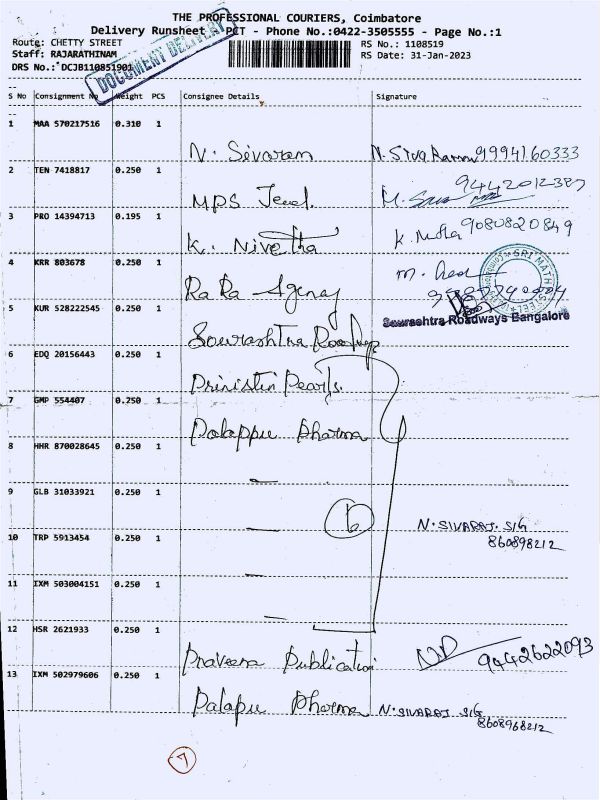 THE PROFESSIONAL COURIERS, Coimbatore
Delivery Runsheet - PCT - Phone No.:0422-3505555 - Page No.:1
Route: CHETTY STREET
RS No.: 1108519
Staff: RAJARATHINAM
RS Date: 31-Jan-2023
DRS No.: DCJB110851901
DOCUMENT DELIVERY
S No Consignment No Weight PCS Consignee Details Signature
1 MAA 570217516 0.310 1
N. Sivaram N. Siva Raman 9994160333
2 TEN 7418817 0.250 1
MPS Jewel. 9442012387
3 PRO 14394713 0.195 1
K. Nivetha K. Nivetha 9080820849
4 KRR 803678 0.250 1
Ra Ra Agency
SRI MATHA STEEL
5 KUR 528222545 0.250 1
Sourashtra Roadways
Sourashtra Roadways Bangalore
6 EDQ 20156443 0.250 1
Prinistin Pearls.
7 GMP 554407 0.250 1
Palappu Pharma
8 HHR 870028645 0.250 1
9 GLB 31033921 0.250 1
6 N. SIVARAJ. SIG
10 TRP 5913454 0.250 1
860898212
11 IXM 503004151 0.250 1
12 HSR 2621933 0.250 1
Praveena Publication 9442622093
13 IXM 502979606 0.250 1
Palapu Pharma N. SIVARAJ. SIG
8608968212
7